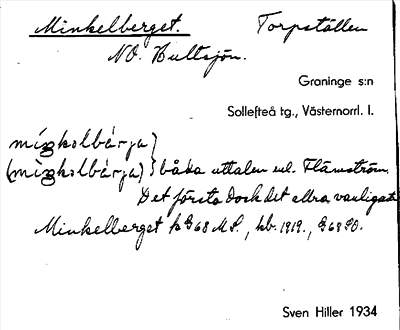 Minkelberget. Torpställen
NO. Hultsjön.
Graninge s:n
Sollefteå tg., Västernorrl. l.
míŋkəlbǽrja }
(mìŋkəlbǽrja) } båda uttalen enl. Flamström.
Det första dock det allra vanligast
Minkelberget k 68 , kb. 1919., 68 SO.
Sven Hiller 1934